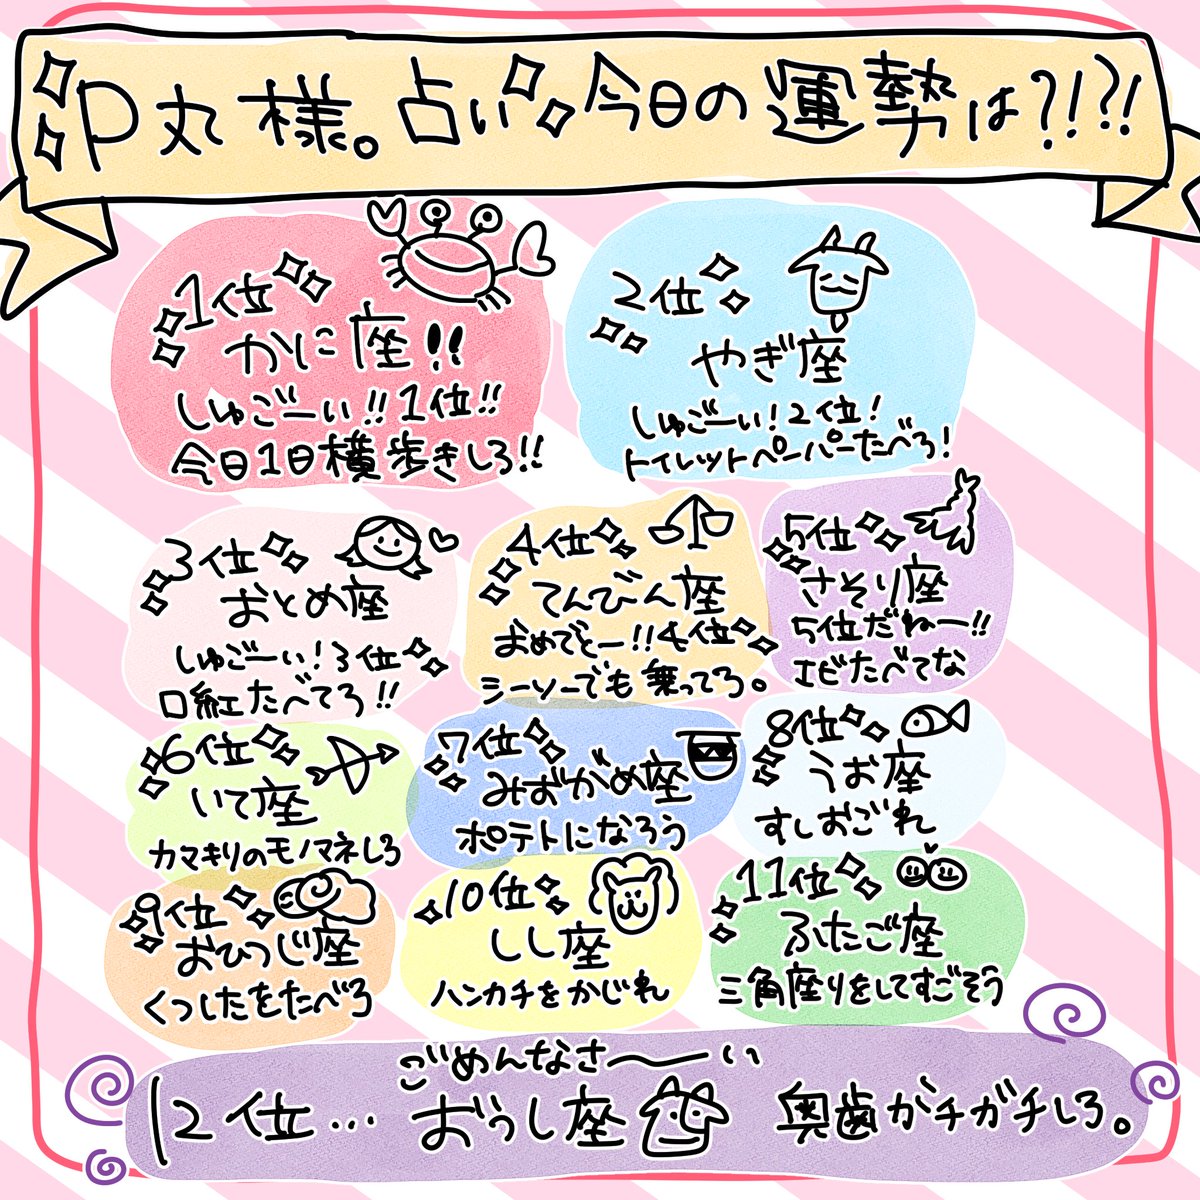 P丸様。占い今日の運勢は?!?!
1位
かに座!!
しゅごーい!!1位!!
今日1日横歩きしろ!!
2位
やぎ座
しゅごーい!2位!
トイレットペーパーたべろ!
3位
おとめ座
しゅごーい!3位
口紅たべてろ!!
4位
てんびん座
おめでとー!!4位
シーソーでも乗ってろ。
5位
さそり座
5位だねー!!
エビたべてな
6位
いて座
カマキリのモノマネしろ
7位
みずがめ座
ポテトになろう
8位
うお座
すしおごれ
9位
おひつじ座
くつしたをたべろ
10位
しし座
ハンカチをかじれ
11位
ふたご座
三角座りをしてすごそう
ごめんなさ〜ーい
12位... おうし座 奥歯ガチガチしろ。